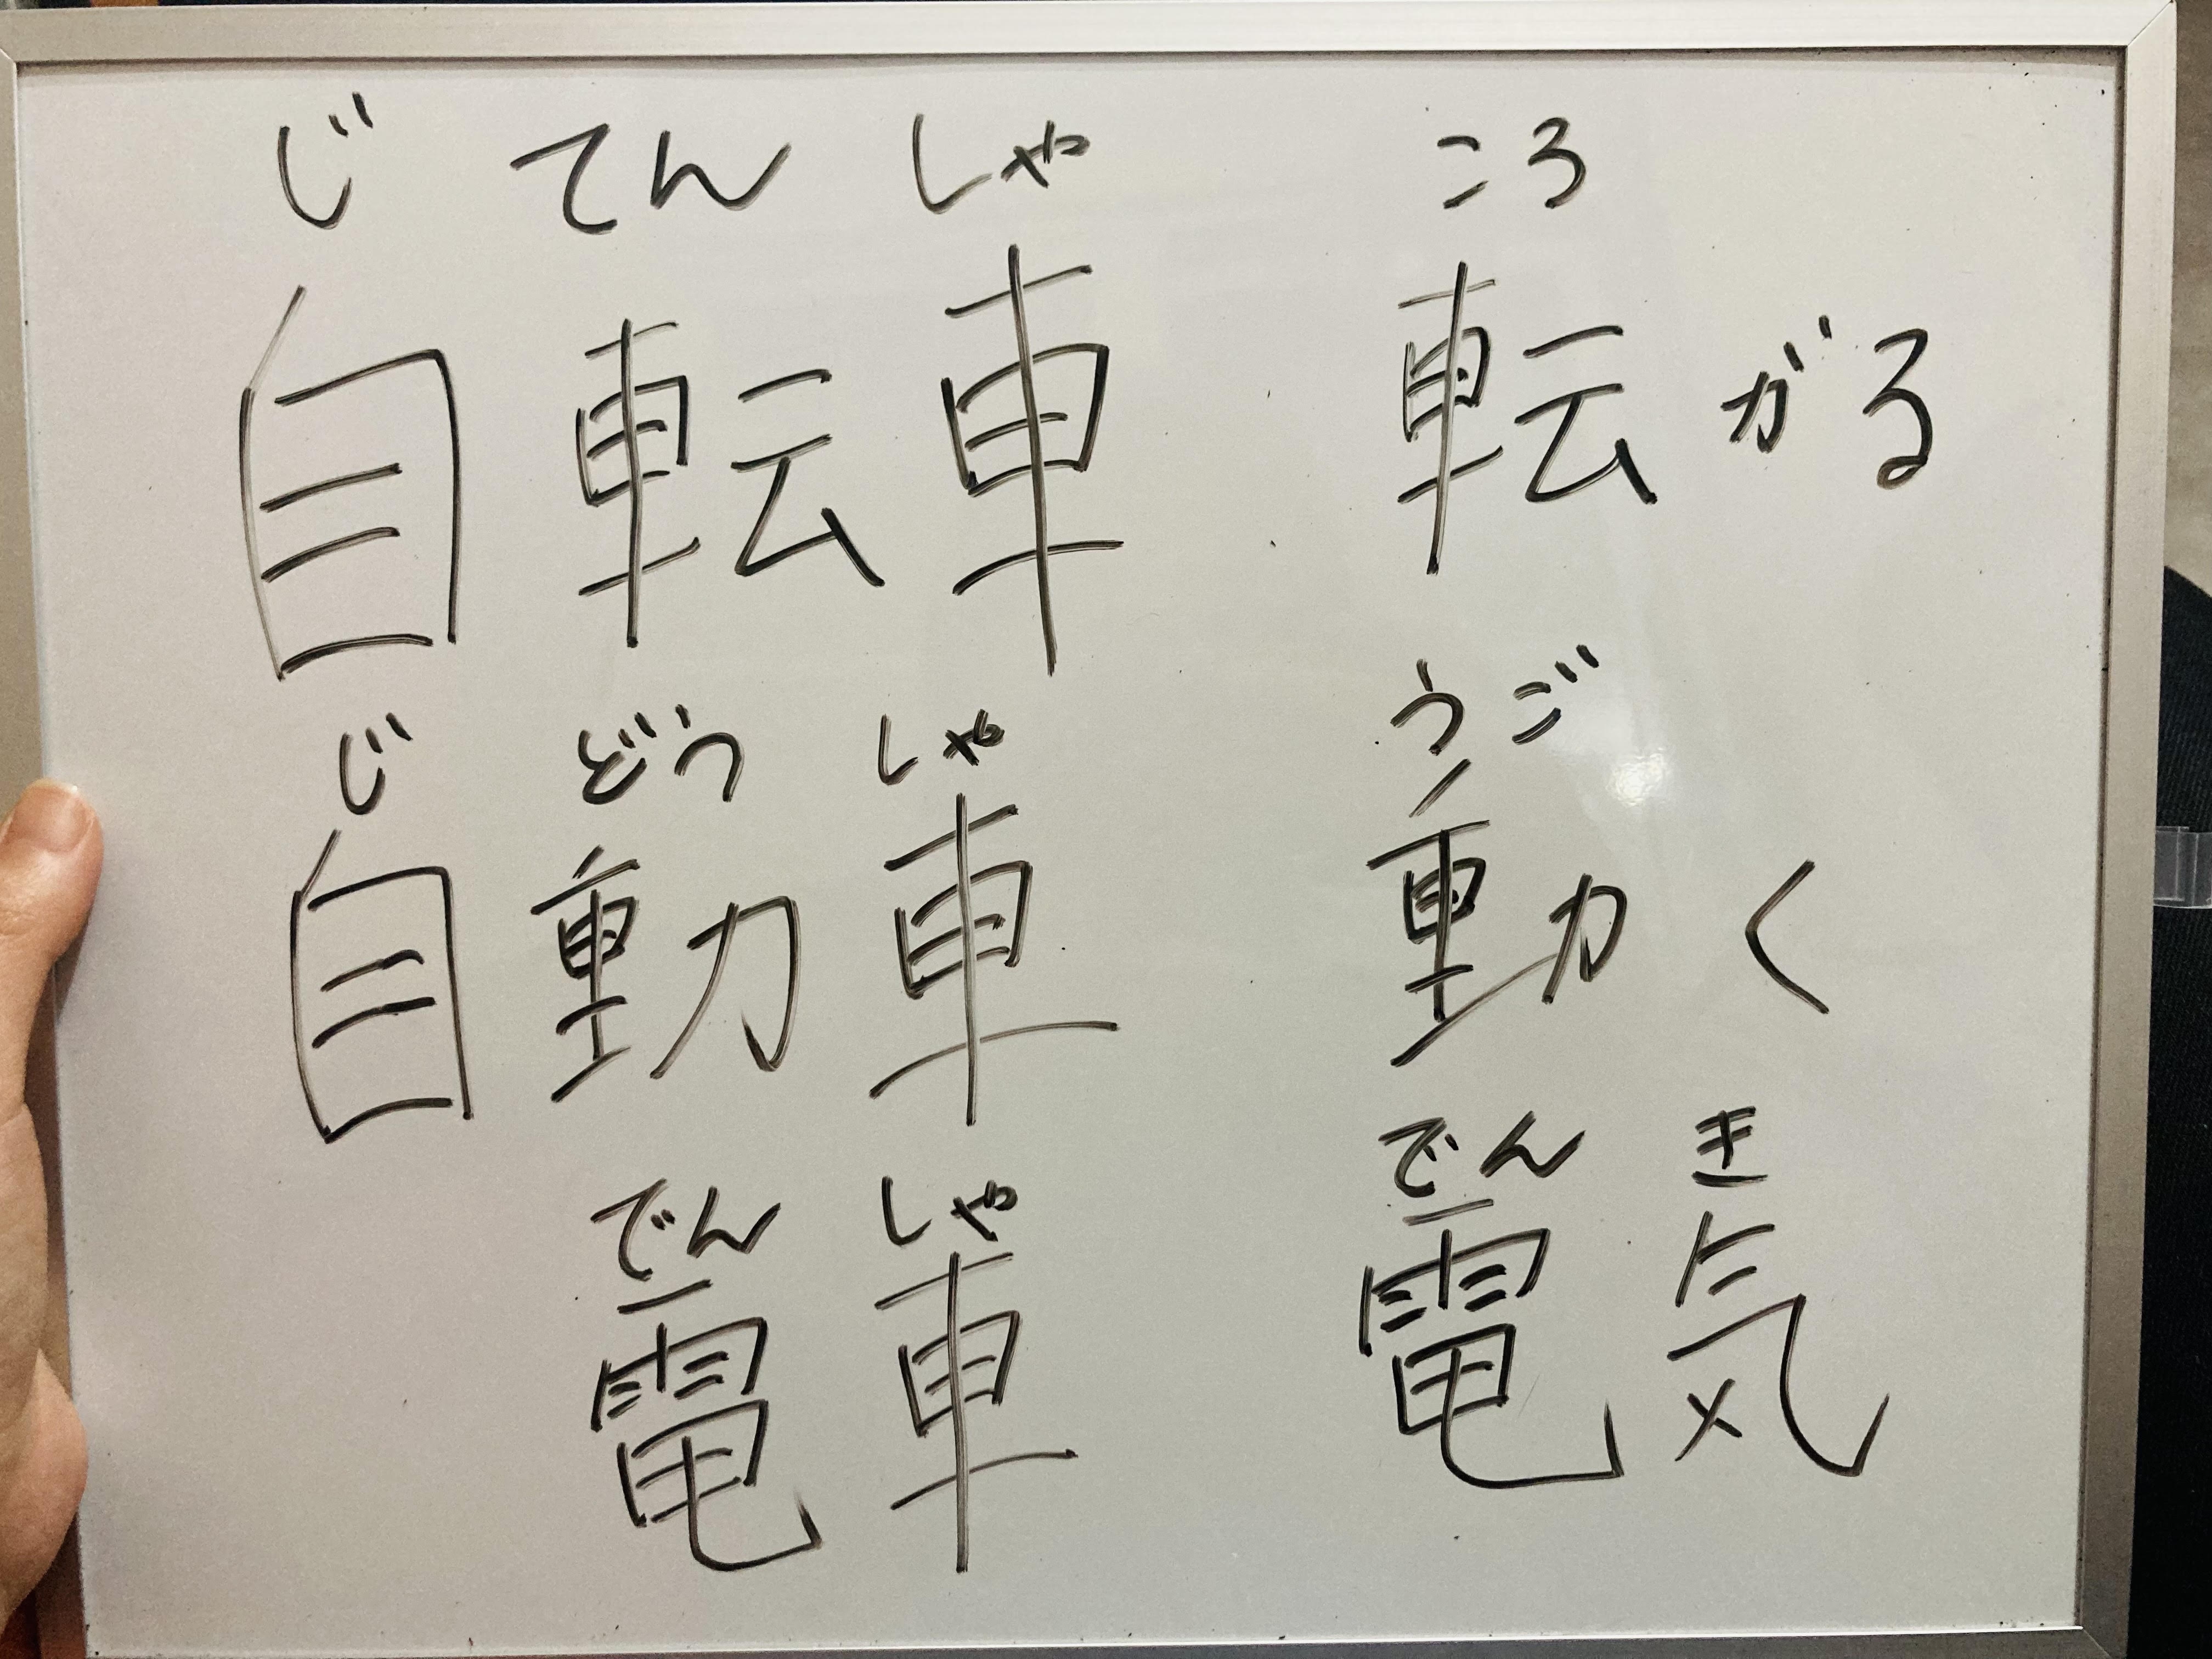 じ てん しゃ ころ
自転車 転がる
じ どう しゃ うご
自動車 動く
でん しゃ でん き
電車 電気